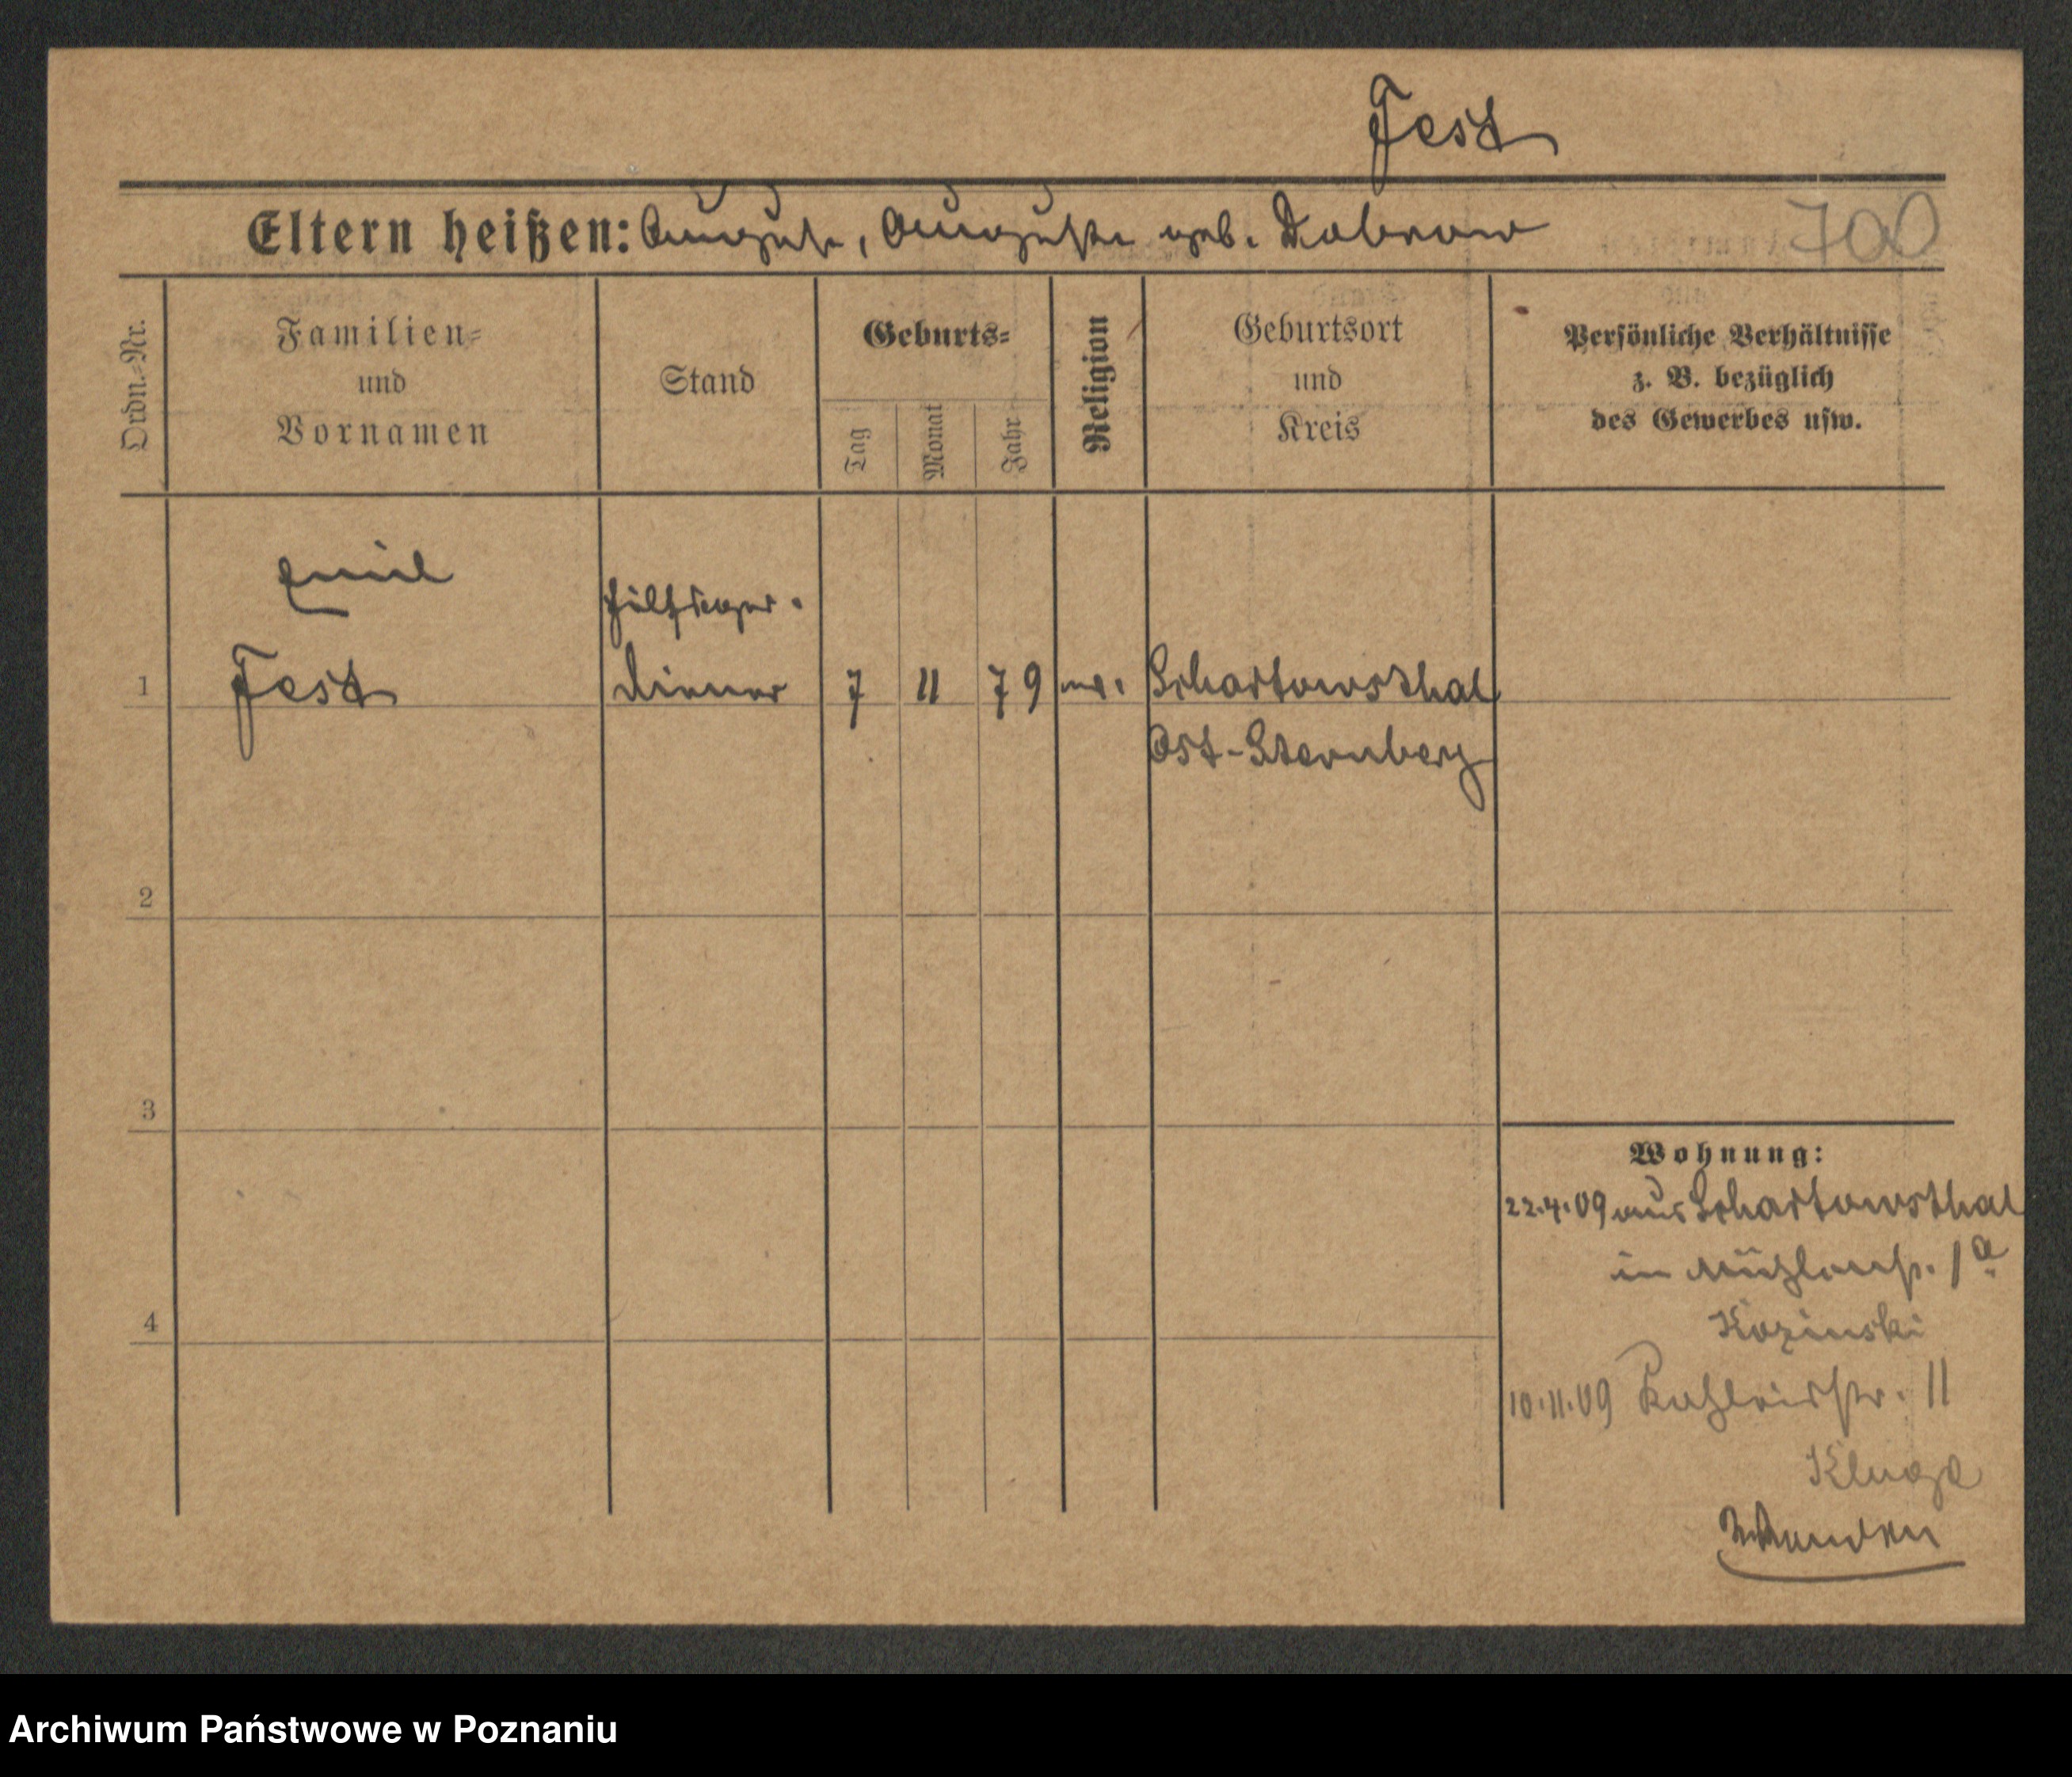 Fest
Eltern heißen: August, Auguste geb. Dobrow
700
Ordn.=Nr.
Familien=
und
Vornamen
Stand
Geburts=
Tag
Monat
Jahr
Religion
Geburtsort
und
Kreis
Persönliche Verhältnisse
z. B. bezüglich
des Gewerbes usw.
Emil
Hülfsger.
1 Fest diener 7 11 79 ev. Schartowsthal
Ost-Sternberg
2
3
4
Wohnung:
22.4.09 aus Schartowsthal
in Mühlenstr. 1a
Kozinski
10.11.09 str. 11
Kluge